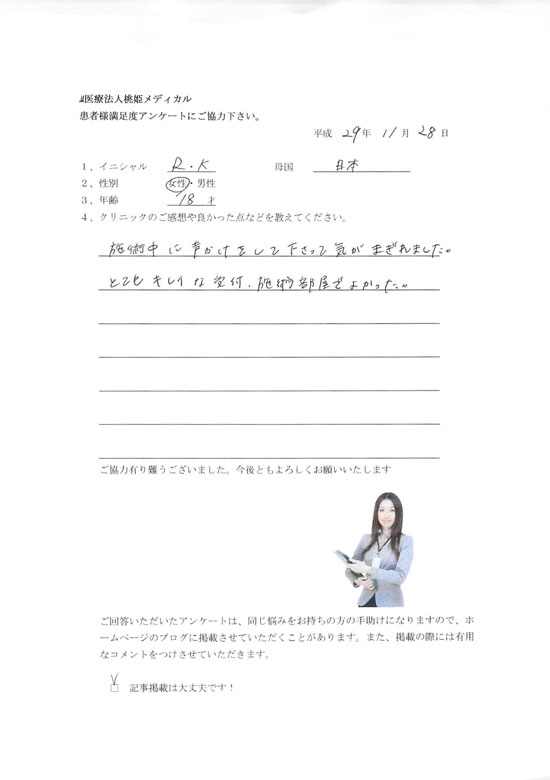 医療法人桃姫メディカル
患者様満足度アンケートにご協力下さい。
平成 29年 11月 28日
1、イニシャル R.K 母国 日本
2、性別 女性・男性
3、年齢 18才
4、クリニックのご感想や良かった点などを教えてください。
施術中に声かけをして下さって気がまぎれました。
とてもキレイな受付、施術部屋でよかった。
ご協力有り難うございました。今後ともよろしくお願いいたします
ご回答いただいたアンケートは、同じ悩みをお持ちの方の手助けになりますので、ホ
ームページのブログに掲載させていただくことがあります。また、掲載の際には有用
なコメントをつけさせていただきます。
記事掲載は大丈夫です！